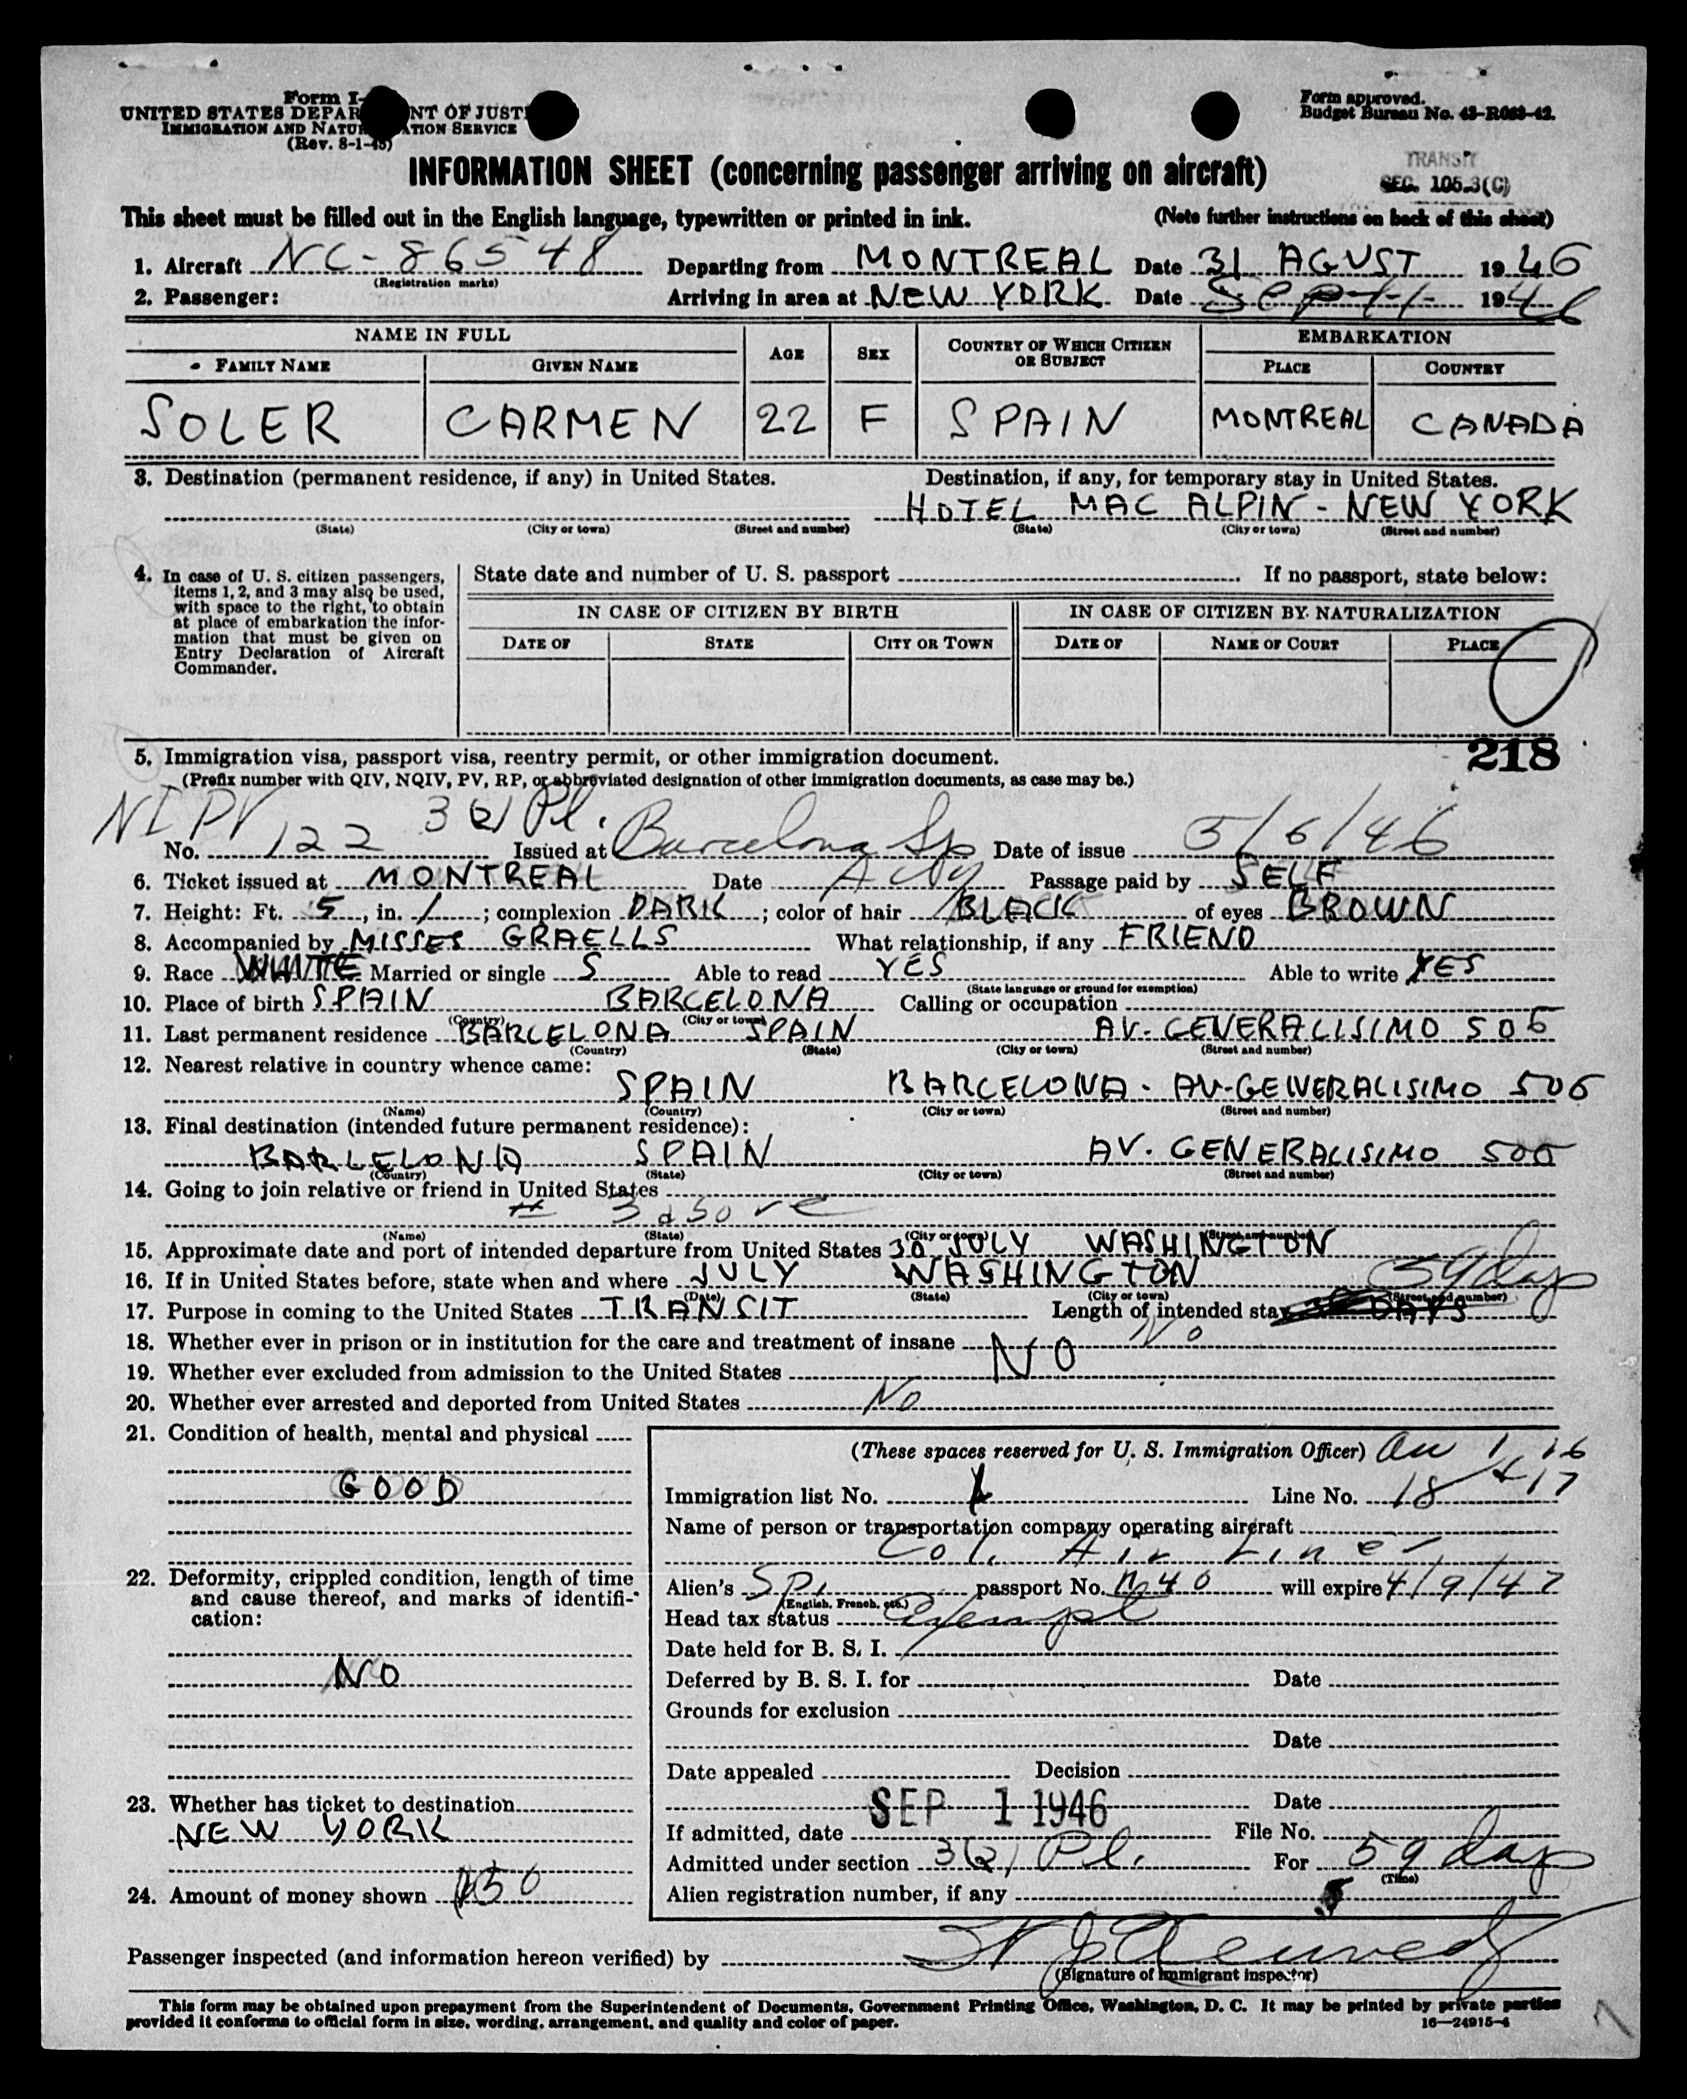 Form I-
UNITED STATES DEPAR NT OF JUST
IMMIGRATION AND NATU ATION SERVICE
(Rev. 8-1-45)
Form approved.
Budget Bureau No. 43-R063-42.
INFORMATION SHEET (concerning passenger arriving on aircraft)
TRANSIT
SEC. 105.3(C)
This sheet must be filled out in the English language, typewritten or printed in ink. (Note further instructions on back of this sheet)
1. Aircraft NC-86548 Departing from MONTREAL Date 31 AGUST 1946
(Registration marks)
2. Passenger: Arriving in area at NEW YORK Date Sept 1 1946
NAME IN FULL AGE SEX COUNTRY OF WHICH CITIZEN OR SUBJECT EMBARKATION
FAMILY NAME GIVEN NAME PLACE COUNTRY
SOLER CARMEN 22 F SPAIN MONTREAL CANADA
3. Destination (permanent residence, if any) in United States. Destination, if any, for temporary stay in United States.
HOTEL MAC ALPIN - NEW YORK
(State) (City or town) (Street and number) (State) (City or town) (Street and number)
4. In case of U. S. citizen passengers, items 1, 2, and 3 may also be used, with space to the right, to obtain at place of embarkation the information that must be given on Entry Declaration of Aircraft Commander.
State date and number of U. S. passport If no passport, state below:
IN CASE OF CITIZEN BY BIRTH IN CASE OF CITIZEN BY NATURALIZATION
DATE OF STATE CITY OR TOWN DATE OF NAME OF COURT PLACE
218
5. Immigration visa, passport visa, reentry permit, or other immigration document.
(Prefix number with QIV, NQIV, PV, RP, or abbreviated designation of other immigration documents, as case may be.)
NIPV 3(2) Pl.
No. 122 Issued at Barcelona Sp Date of issue 5/6/46
6. Ticket issued at MONTREAL Date Passage paid by SELF
7. Height: Ft. 5, in. 1; complexion DARK; color of hair BLACK of eyes BROWN
8. Accompanied by MISSES GRAELLS What relationship, if any FRIEND
9. Race WHITE Married or single S Able to read YES Able to write YES
(State language or ground for exemption)
10. Place of birth SPAIN BARCELONA Calling or occupation
(Country) (City or town)
11. Last permanent residence BARCELONA SPAIN AV. GENERALISIMO 506
(Country) (State) (City or town) (Street and number)
12. Nearest relative in country whence came:
SPAIN BARCELONA - AV-GENERALISIMO 506
(Name) (Country) (City or town) (Street and number)
13. Final destination (intended future permanent residence):
BARCELONA SPAIN AV. GENERALISIMO 506
(Country) (State) (City or town) (Street and number)
14. Going to join relative or friend in United States
(Name) (State) (City or town) (Street and number)
15. Approximate date and port of intended departure from United States 30 JULY WASHINGTON
16. If in United States before, state when and where JULY WASHINGTON
(Date) (State) (City or town) (Street and number)
59 days
17. Purpose in coming to the United States TRANSIT Length of intended stay DAYS
18. Whether ever in prison or in institution for the care and treatment of insane No
19. Whether ever excluded from admission to the United States NO
20. Whether ever arrested and deported from United States No
21. Condition of health, mental and physical
GOOD
22. Deformity, crippled condition, length of time and cause thereof, and marks of identification:
NO
23. Whether has ticket to destination
NEW YORK
24. Amount of money shown $50
(These spaces reserved for U. S. Immigration Officer)
Immigration list No. 1 Line No. 18
Name of person or transportation company operating aircraft
Col. Air Lines
Alien's Sp. passport No. 1140 will expire 4/9/47
(English, French, etc.)
Head tax status Exempt
Date held for B. S. I.
Deferred by B. S. I. for Date
Grounds for exclusion
Date
Date appealed Decision
Date
If admitted, date SEP 1 1946 File No.
Admitted under section 3(2) Pl. For 59 days
(Time)
Alien registration number, if any
Passenger inspected (and information hereon verified) by Kennedy
(Signature of immigrant inspector)
This form may be obtained upon prepayment from the Superintendent of Documents, Government Printing Office, Washington, D. C. It may be printed by private parties
provided it conforms to official form in size, wording, arrangement, and quality and color of paper. 16—24915-4